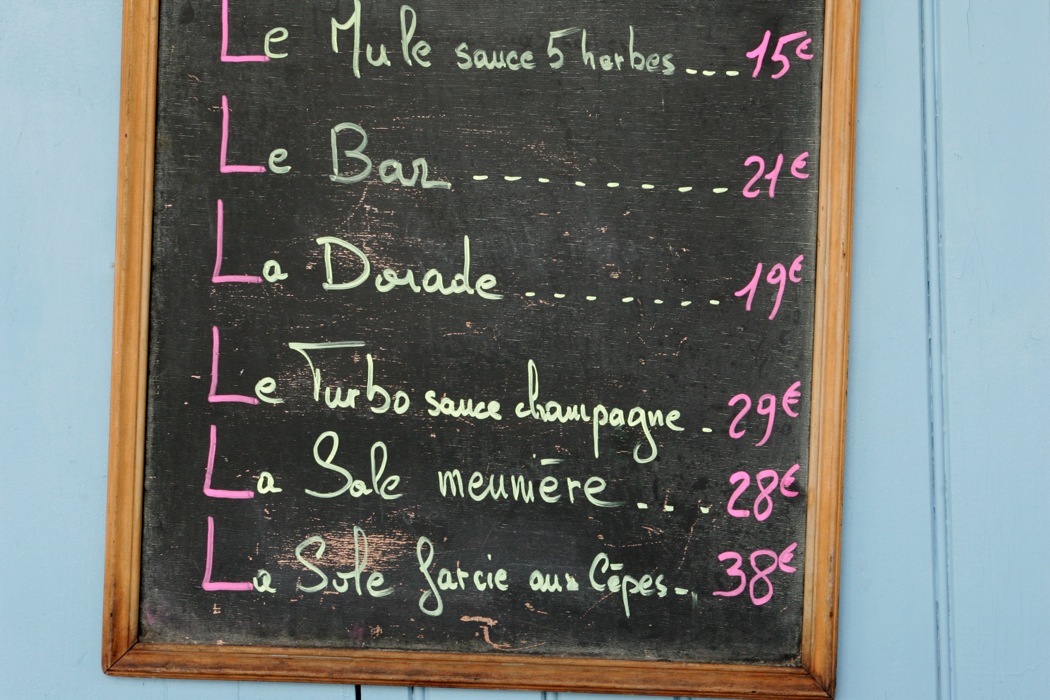 Le Mule sauce 5 herbes...15€
Le Bar ---------21€
La Dorade .......19€
Le Turbo sauce champagne .29€
La Sole meunière ...28€
La Sole farcie aux Cêpes..38€